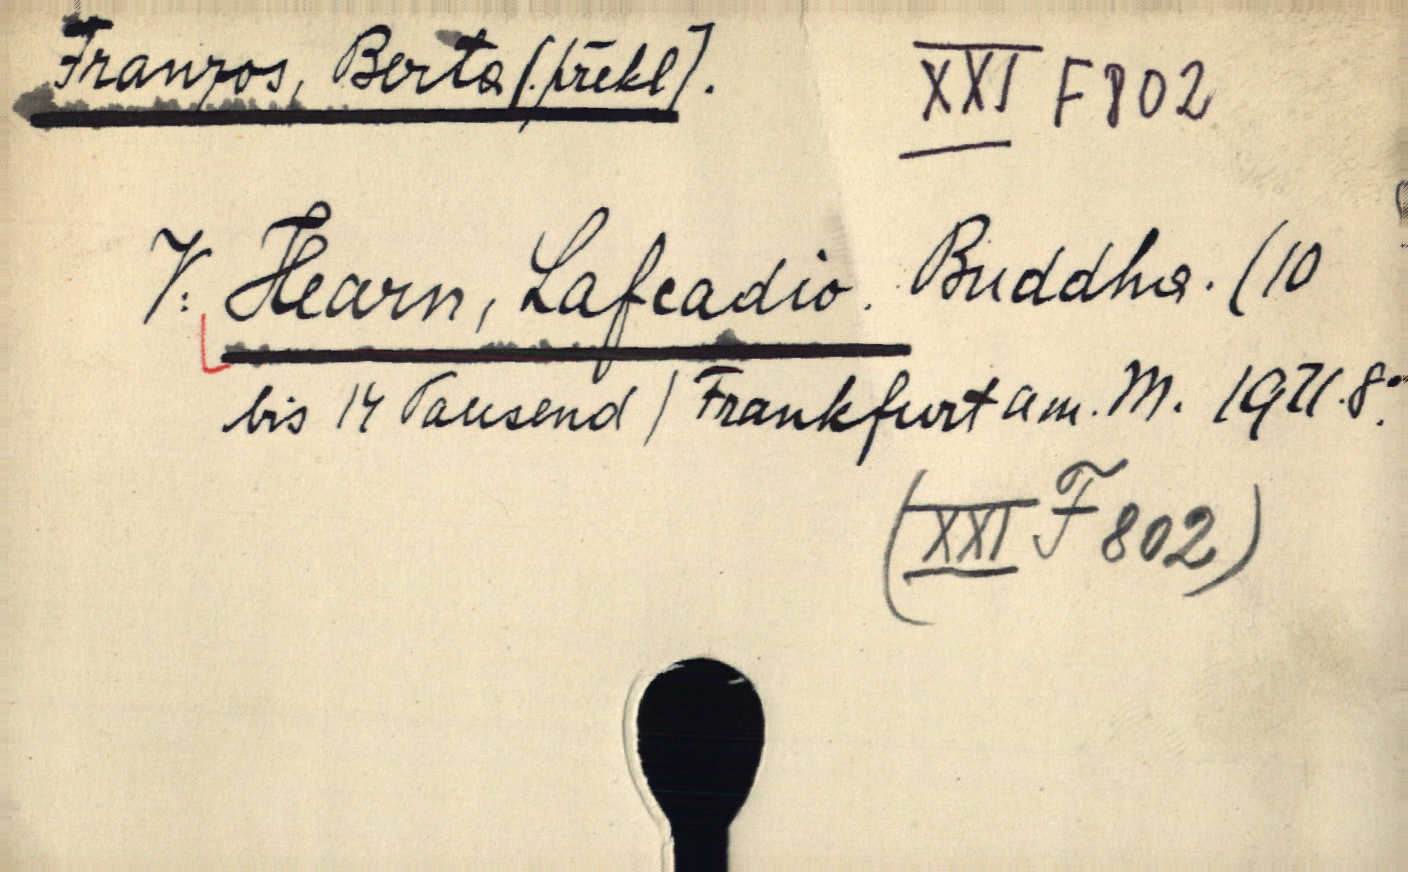 Franzos, Berta [překl].
XXI F 802
V: Hearn, Lafcadio. Buddha. (10
bis 14 Tausend) Frankfurt am. M. 1921. 8°.
(XXI F 802)